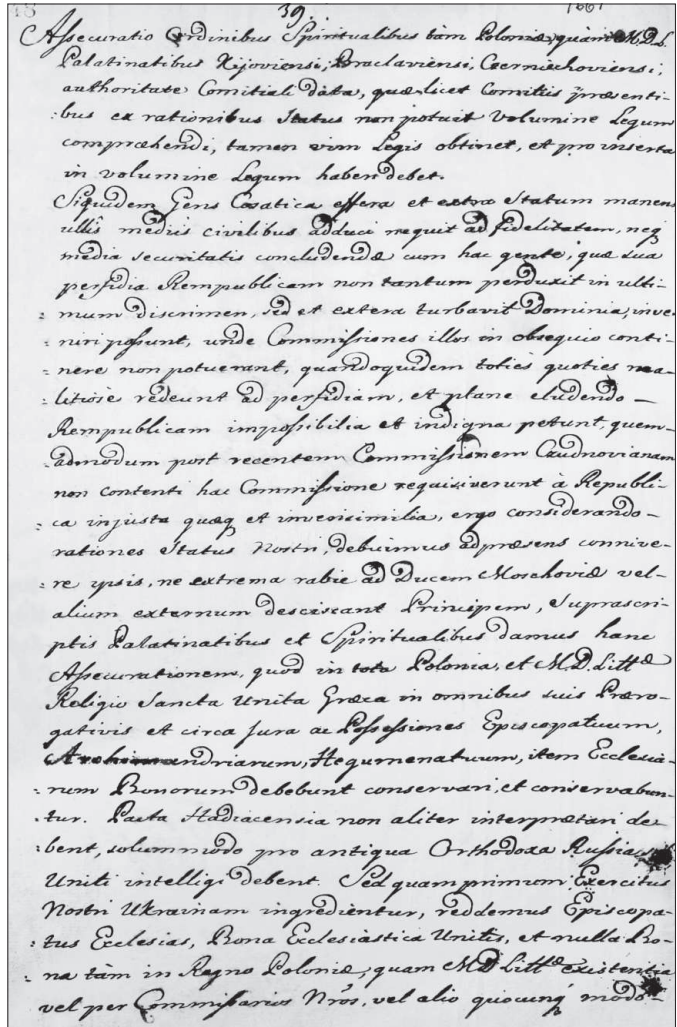 18 39. 1661
Assecuratio Ordinibus Spiritualibus tàm Poloniæ, quàm M.D.L.
Palatinatibus Kijoviensi, Braclaviensi, Czerniechoviensi,
authoritate Comitiali data, quæ licet Comitiis præsenti-
:bus ex rationibus Status non potuit volumine Legum
compræhendi, tamen vim Legis obtinet, et pro inserta
in volumine Legum haberi debet.
Siquidem Gens Cosatica effera et extra Statum manens
ullis mediis civilibus adduci nequit ad fidelitatem, neq
media securitatis concludendæ cum hac gente, quæ sua
perfidia Rempublicam non tantum perduxit in ulti-
:mum discrimen, sed et extera turbavit Dominia, inve-
:niri possunt, unde Commissiones illos in obsequio conti-
nere non potuerant, quandoquidem toties quoties ma-
:litiose redeunt ad perfidiam, et plane eludendo
Rempublicam impossibilia et indigna petunt, quem-
:admodum post recentem Commissionem Czudnovianam
non contenti hac Commissione requisiverunt à Republi-
:ca injusta quæq et inverisimilia, ergo considerando
rationes Status Nostri, debuimus ad præsens connive-
:re ypsis, ne extrema rabie ad Ducem Moschoviæ vel
alium externum desciscant Principem, Suprascri-
ptis Palatinatibus et Spiritualibus damus hanc
Assecurationem, quod in tota Polonia, et M.D. Littæ
Religio Sancta Unita Græca in omnibus suis Præro-
gativis et circa Jura ac Possessiones Episcopatuum,
Archimandriarum, Hegumenatuum, item Ecclesia-
:rum Bonorum debebunt conservari, et conservabun-
:tur. Pacta Hadiacensia non aliter interprætari de
:bent, solummodo pro antiqua Orthodoxa Russia,
Uniti intelligi debent. Sed quam primum Exercitus
Nostri Ukrainam ingredientur, reddemus Episcopa-
:tus Ecclesias, Bona Ecclesiastica Unitis, et nulla Bo-
:na tàm in Regno Poloniæ, quam M.D. Littæ existentia
vel per Commissarios Nros, vel alio quocunq modo